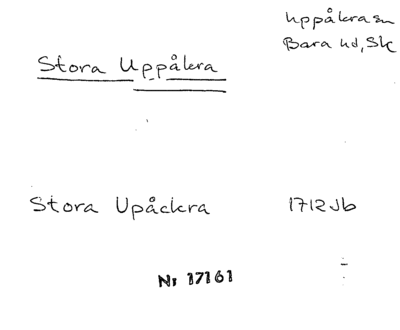 Uppåkra sn
Bara hd, Sk
Stora Uppåkra
Stora Upåckra 1712 Jb
Nr 17161